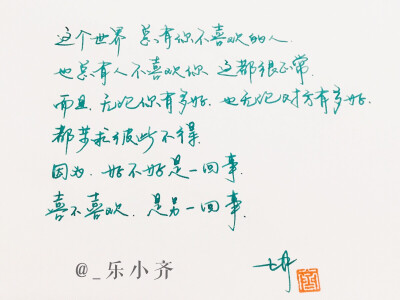 这个世界 总有你不喜欢的人.
也总有人不喜欢你 这都很正常.
而且, 无论你有多好, 也无论对方有多好.
都苛求彼此不得.
因为, 好不好是一回事.
喜不喜欢, 是另一回事.
@_乐小齐